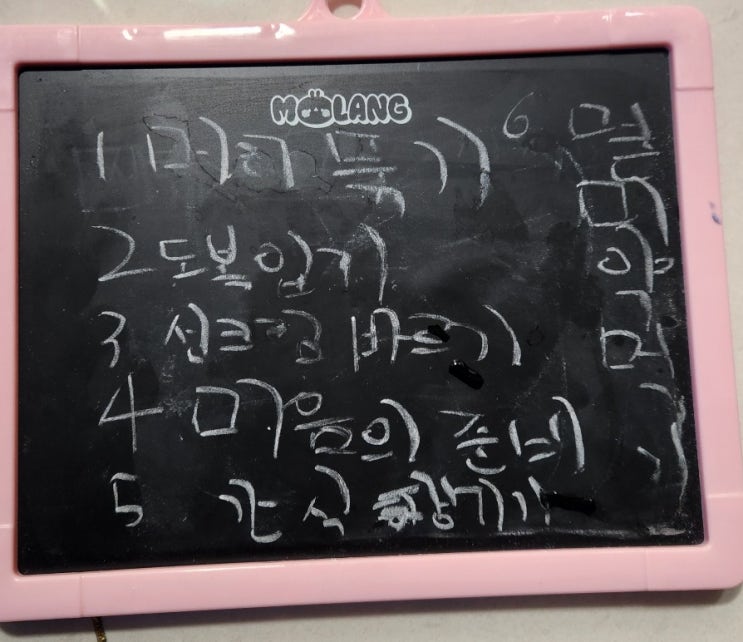 MOLANG
1 머리 묶기
2 도복입기
3 선크림 바르기
4 마음의 준비
5 간식 챙기기
6 멀미약먹기